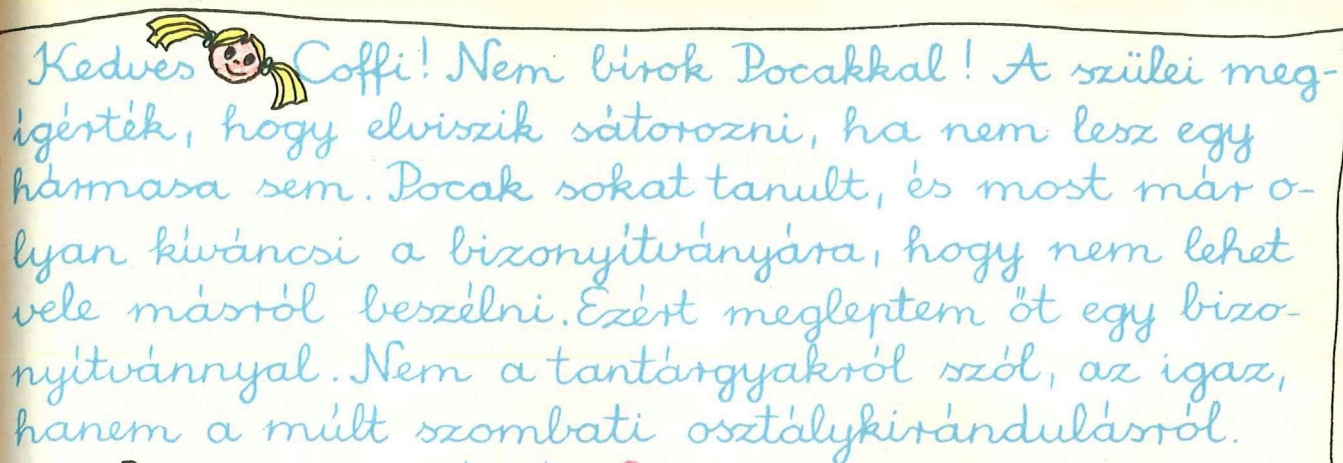 Kedves Coffi! Nem bírok Pocakkal! A szülei meg-
ígérték, hogy elviszik sátorozni, ha nem lesz egy
hármasa sem. Pocak sokat tanult, és most már o-
lyan kíváncsi a bizonyítványára, hogy nem lehet
vele másról beszélni. Ezért megleptem őt egy bizo-
nyítvánnyal. Nem a tantárgyakról szól, az igaz,
hanem a múlt szombati osztálykirándulásról.